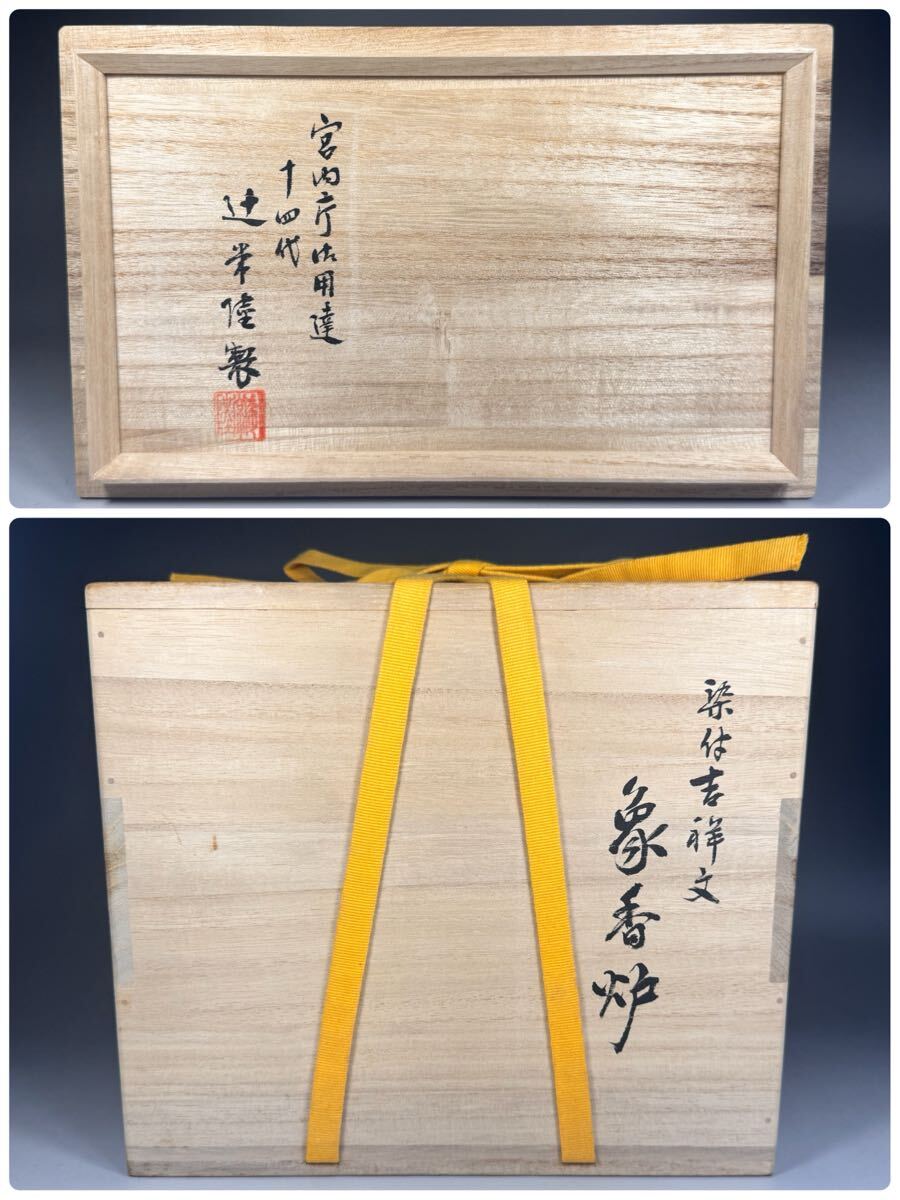 宮内庁御用達
十四代
辻常陸製
染付吉祥文
象香炉